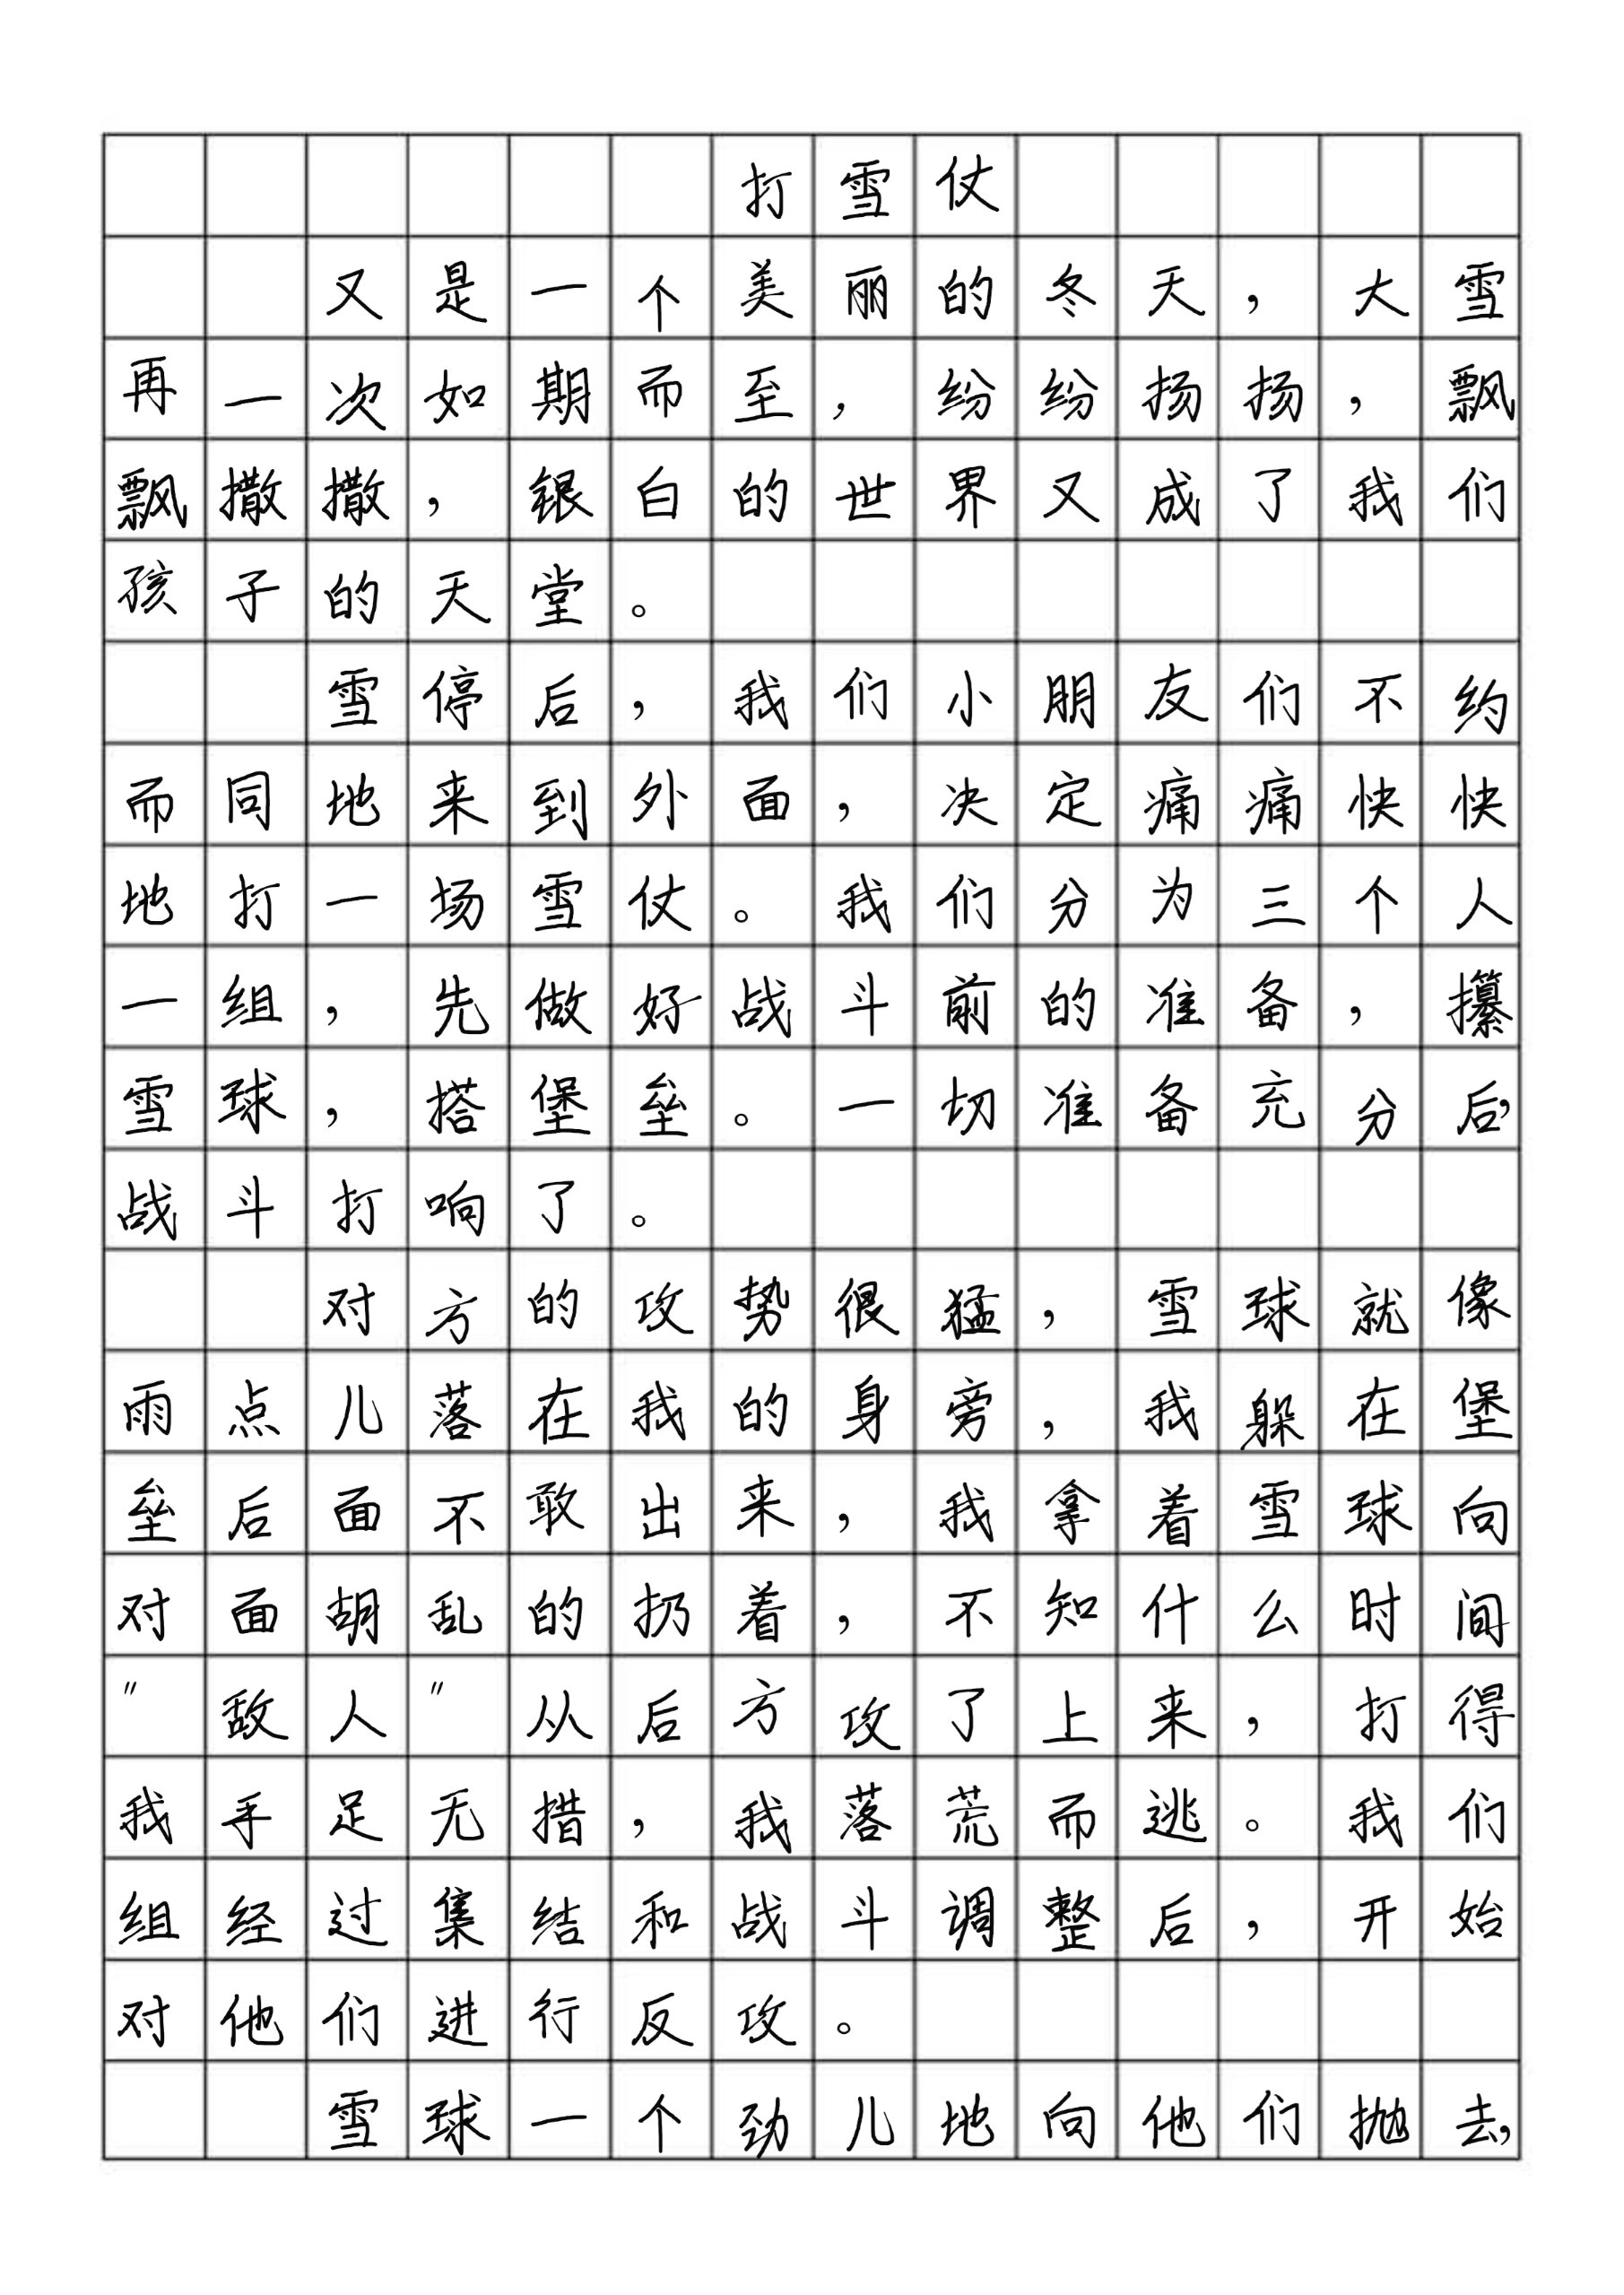 打雪仗
又是一个美丽的冬天，大雪
再一次如期而至，纷纷扬扬，飘
飘撒撒，银白的世界又成了我们
孩子的天堂。
雪停后，我们小朋友们不约
而同地来到外面，决定痛痛快快
地打一场雪仗。我们分为三个人
一组，先做好战斗前的准备，攥
雪球，搭堡垒。一切准备充分后，
战斗打响了。
对方的攻势很猛，雪球就像
雨点儿落在我的身旁，我躲在堡
垒后面不敢出来，我拿着雪球向
对面胡乱的扔着，不知什么时间
"敌人"从后方攻了上来，打得
我手足无措，我落荒而逃。我们
组经过集结和战斗调整后，开始
对他们进行反攻。
雪球一个劲儿地向他们抛去，